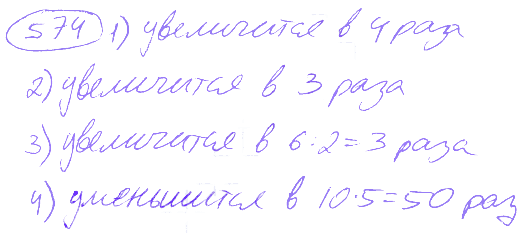 574 1) увеличится в 4 раза
2) увеличится в 3 раза
3) увеличится в 6:2=3 раза
4) уменьшится в 10·5=50 раз